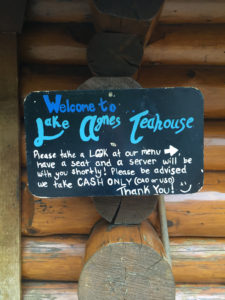 Welcome to
Lake Agnes Teahouse
Please take a LOOK at our menu →,
have a seat and a server will be
with you shortly! Please be advised
we take CASH ONLY (CAD or USD)
Thank You!